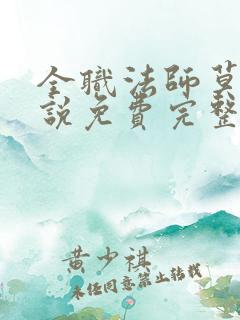 全職法師莫
說免費完整
黃少祺
未任同意禁止轉載